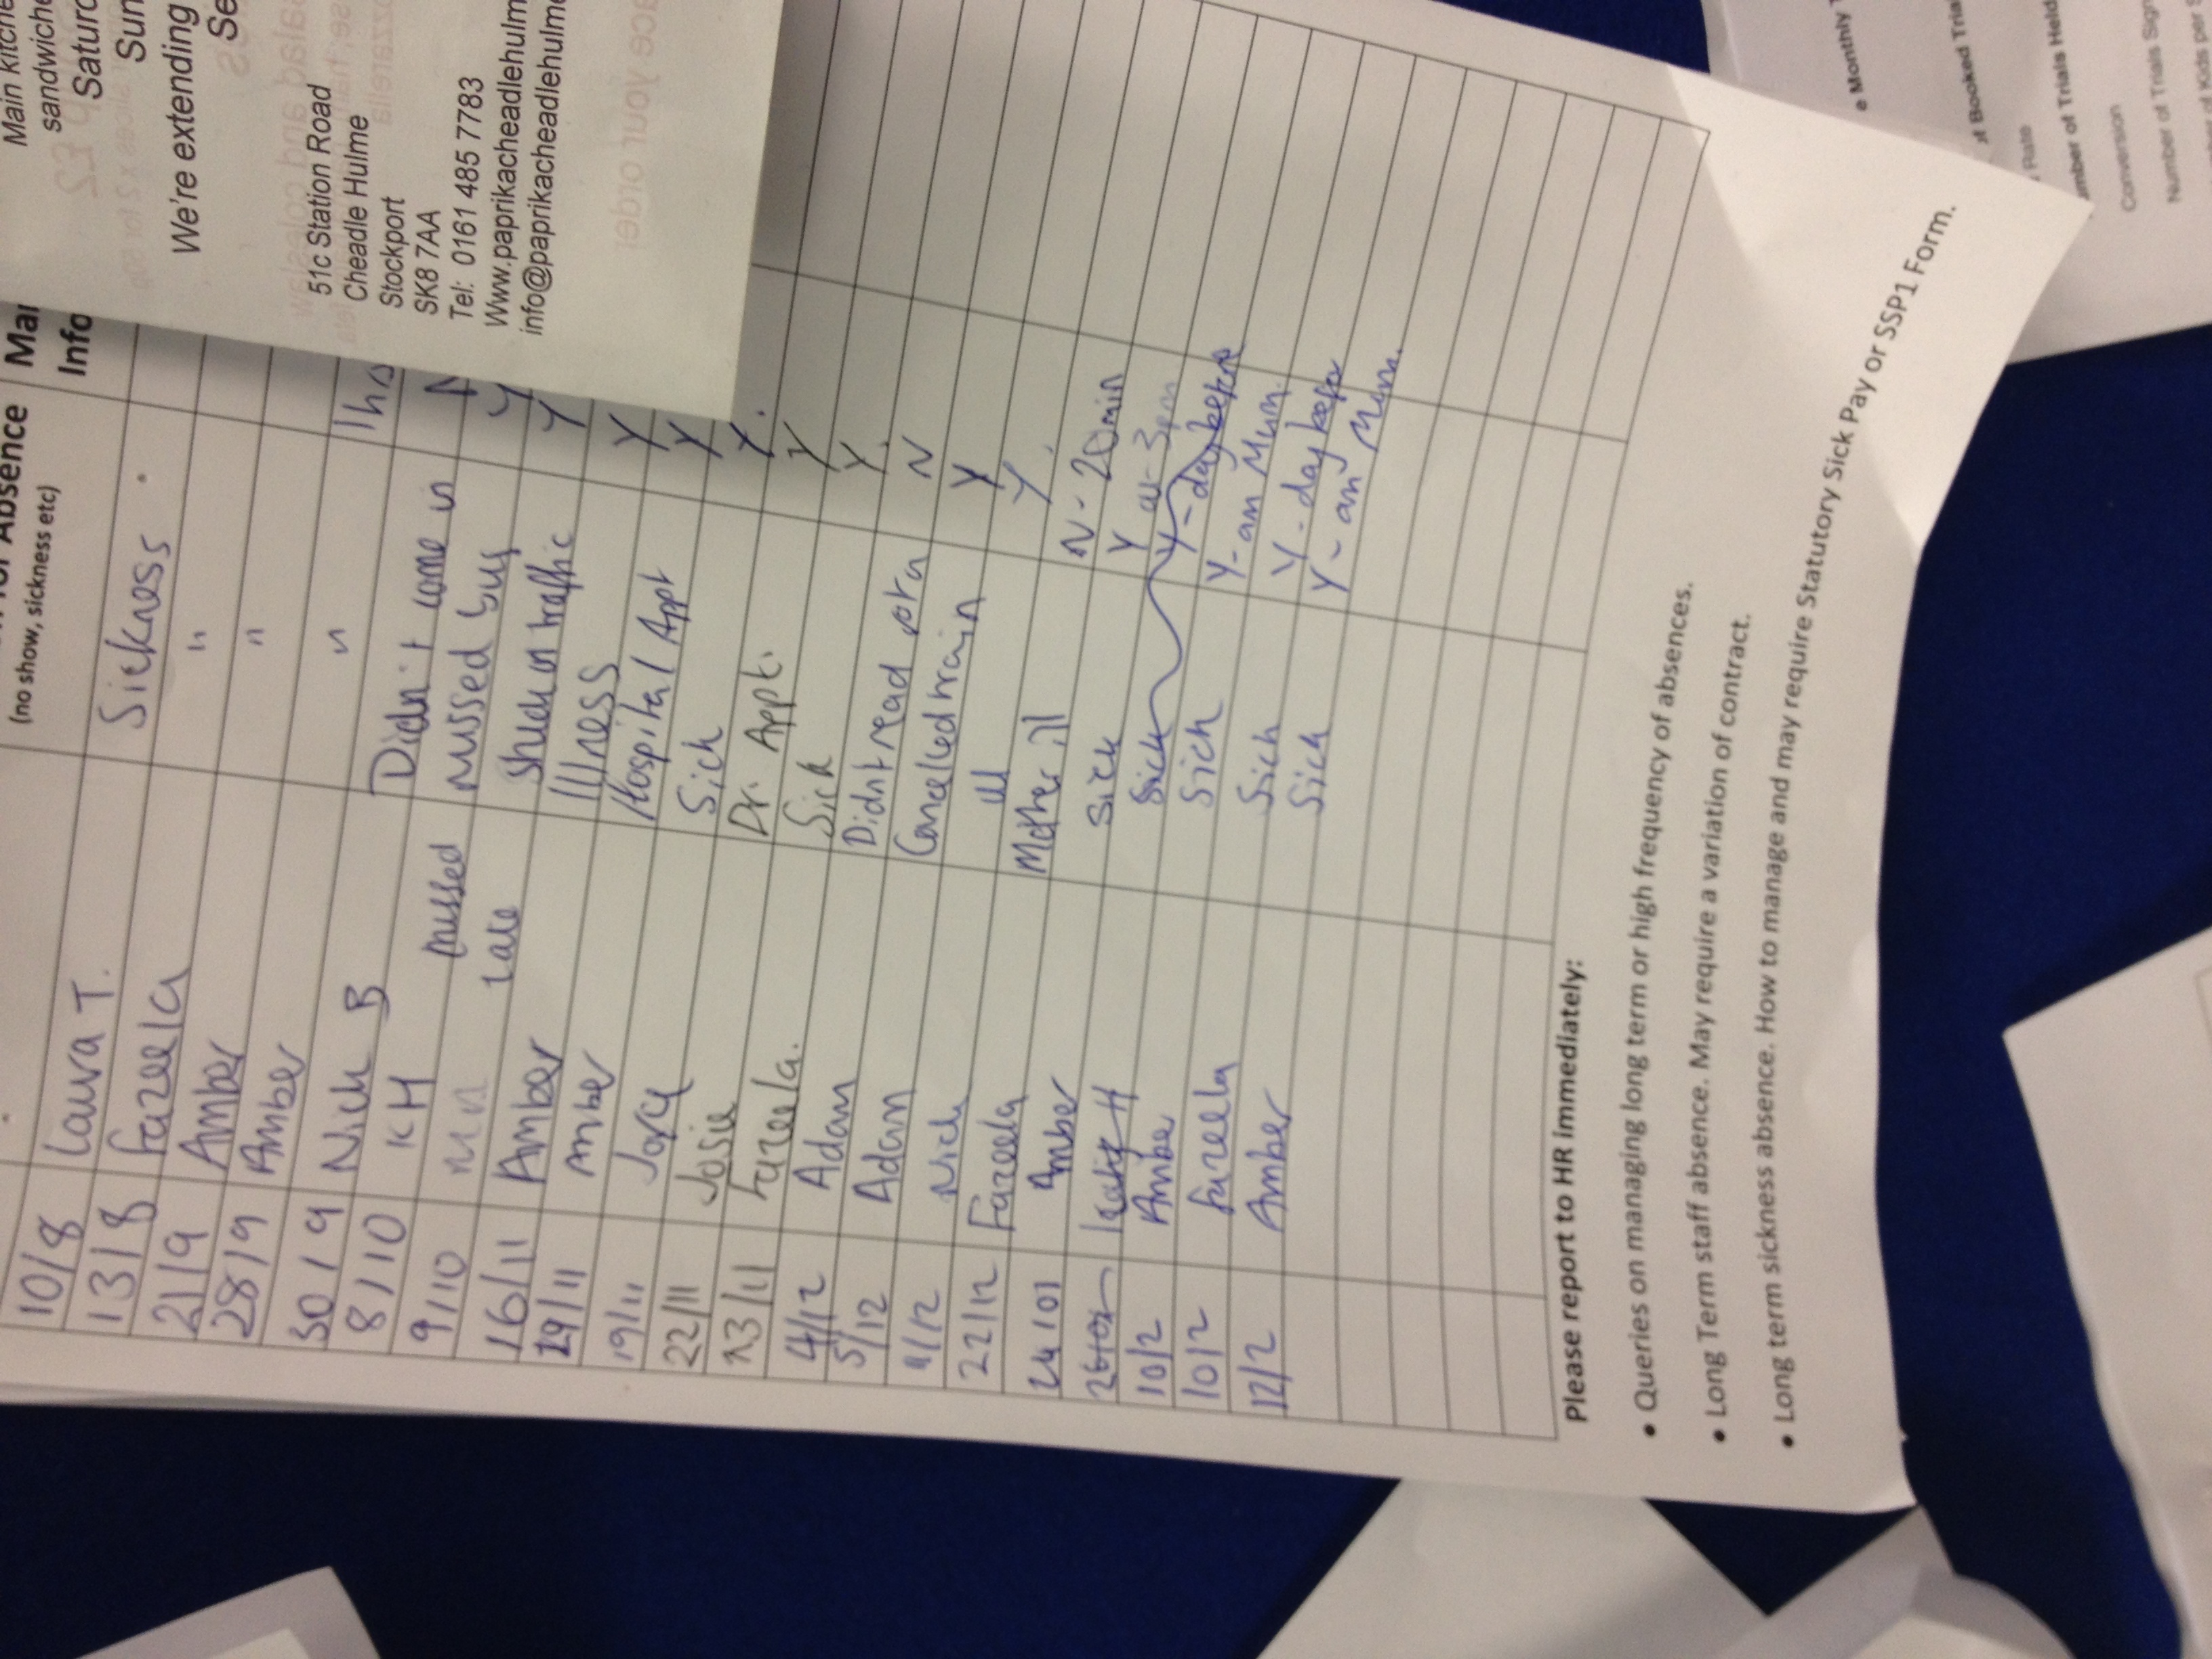 Main kitche
sandwiche
Saturd
Sun
We're extending
Se
51c Station Road
Cheadle Hulme
Stockport
SK8 7AA
Tel: 0161 485 7783
Www.paprikacheadlehulm
info@paprikacheadlehulme
Absence Mar
(no show, sickness etc) Info
10/8 Laura T. Sickness
13/8 Fazeela "
21/9 Amber "
28/9 Amber "
30/9 Nick B Didn't come in
8/10 KH missed missed bus
9/10 late stuck in traffic Y
16/11 Amber Illness Y
19/11 Amber Hospital Appt Y
19/11 Sick Y
22/11 Josie Dr. Appt. Y.
23/11 Fazeela. Sick Y
4/12 Adam Didnt read rota Y.
5/12 Adam Cancelled train N
11/12 Nick ill Y
22/12 Fazeela Mother ill Y.
24/01 Amber Sick N - 20min
Katie H Sick Y - day before
10/2 Amber Sick Y - am Mum.
10/2 Fazeela Sick Y - day before
12/2 Amber Sick Y - am Mum.
Please report to HR immediately:
• Queries on managing long term or high frequency of absences.
• Long Term staff absence. May require a variation of contract.
• Long term sickness absence. How to manage and may require Statutory Sick Pay or SSP1 Form.
e Monthly T
of Booked Tria
Rate
mber of Trials Held
Conversion
Number of Trials Sign
of Kids per S